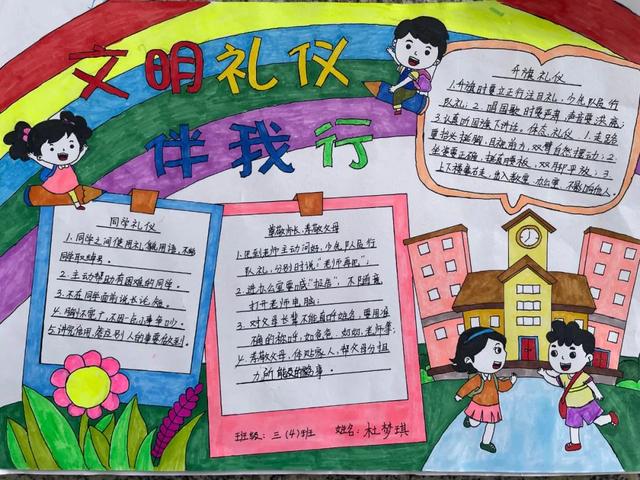 文明礼仪
伴我行
升旗礼仪
1.升旗时要立正行注目礼,少先队员行
队礼;2.唱国歌时要严肃,声音要洪亮;
3.认真听国旗下讲话。体态礼仪 1.走路
要抬头挺胸,目视前方,双臂自然摆动;2.
坐姿要正确,挺直腰板,双脚平放;3.
上下楼靠右走,出入教室、办公室,不影响他人。
同学礼仪
1.同学之间使用礼貌用语,不给
同学取绰号。
2.主动帮助有困难的同学。
3.不在同学面前说长论短。
4.胸怀宽广,不因一点小事争吵。
5.讲究信用,答应别人的事要做到。
尊敬师长、孝敬父母
1.见到老师主动问好,少先队员行
队礼,分别时说:“老师再见”;
2.进办公室要喊“报告”,不随意
打开老师电脑;
3.对父母长辈不能直呼姓名,要用准
确的称呼,如爸爸、妈妈、老师等;
4.孝敬父母,体贴家人,帮父母分担
力所能及的事。
班级:三(4)班 姓名:杜梦琪